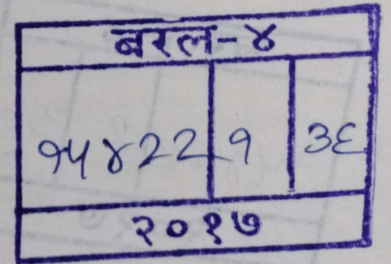 बरल-४
१५४22 १ ३६
२०१७